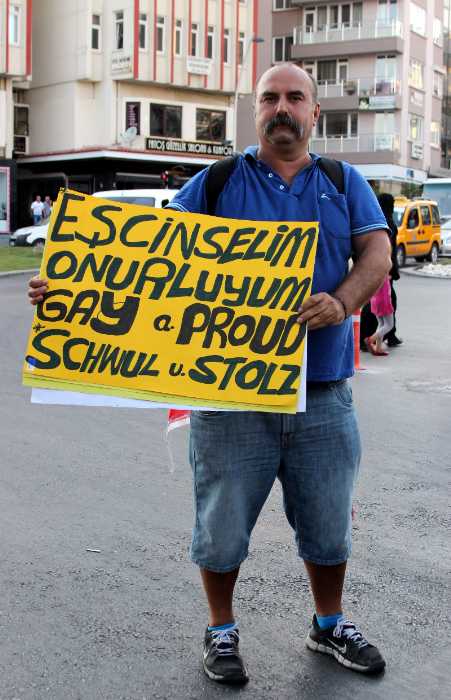 EŞCİNSELİM
ONURLUYUM
GAY a. PROUD
* SCHWUL u. STOLZ
FATOŞ GÜZELLİK SALONU & KUAFÖR